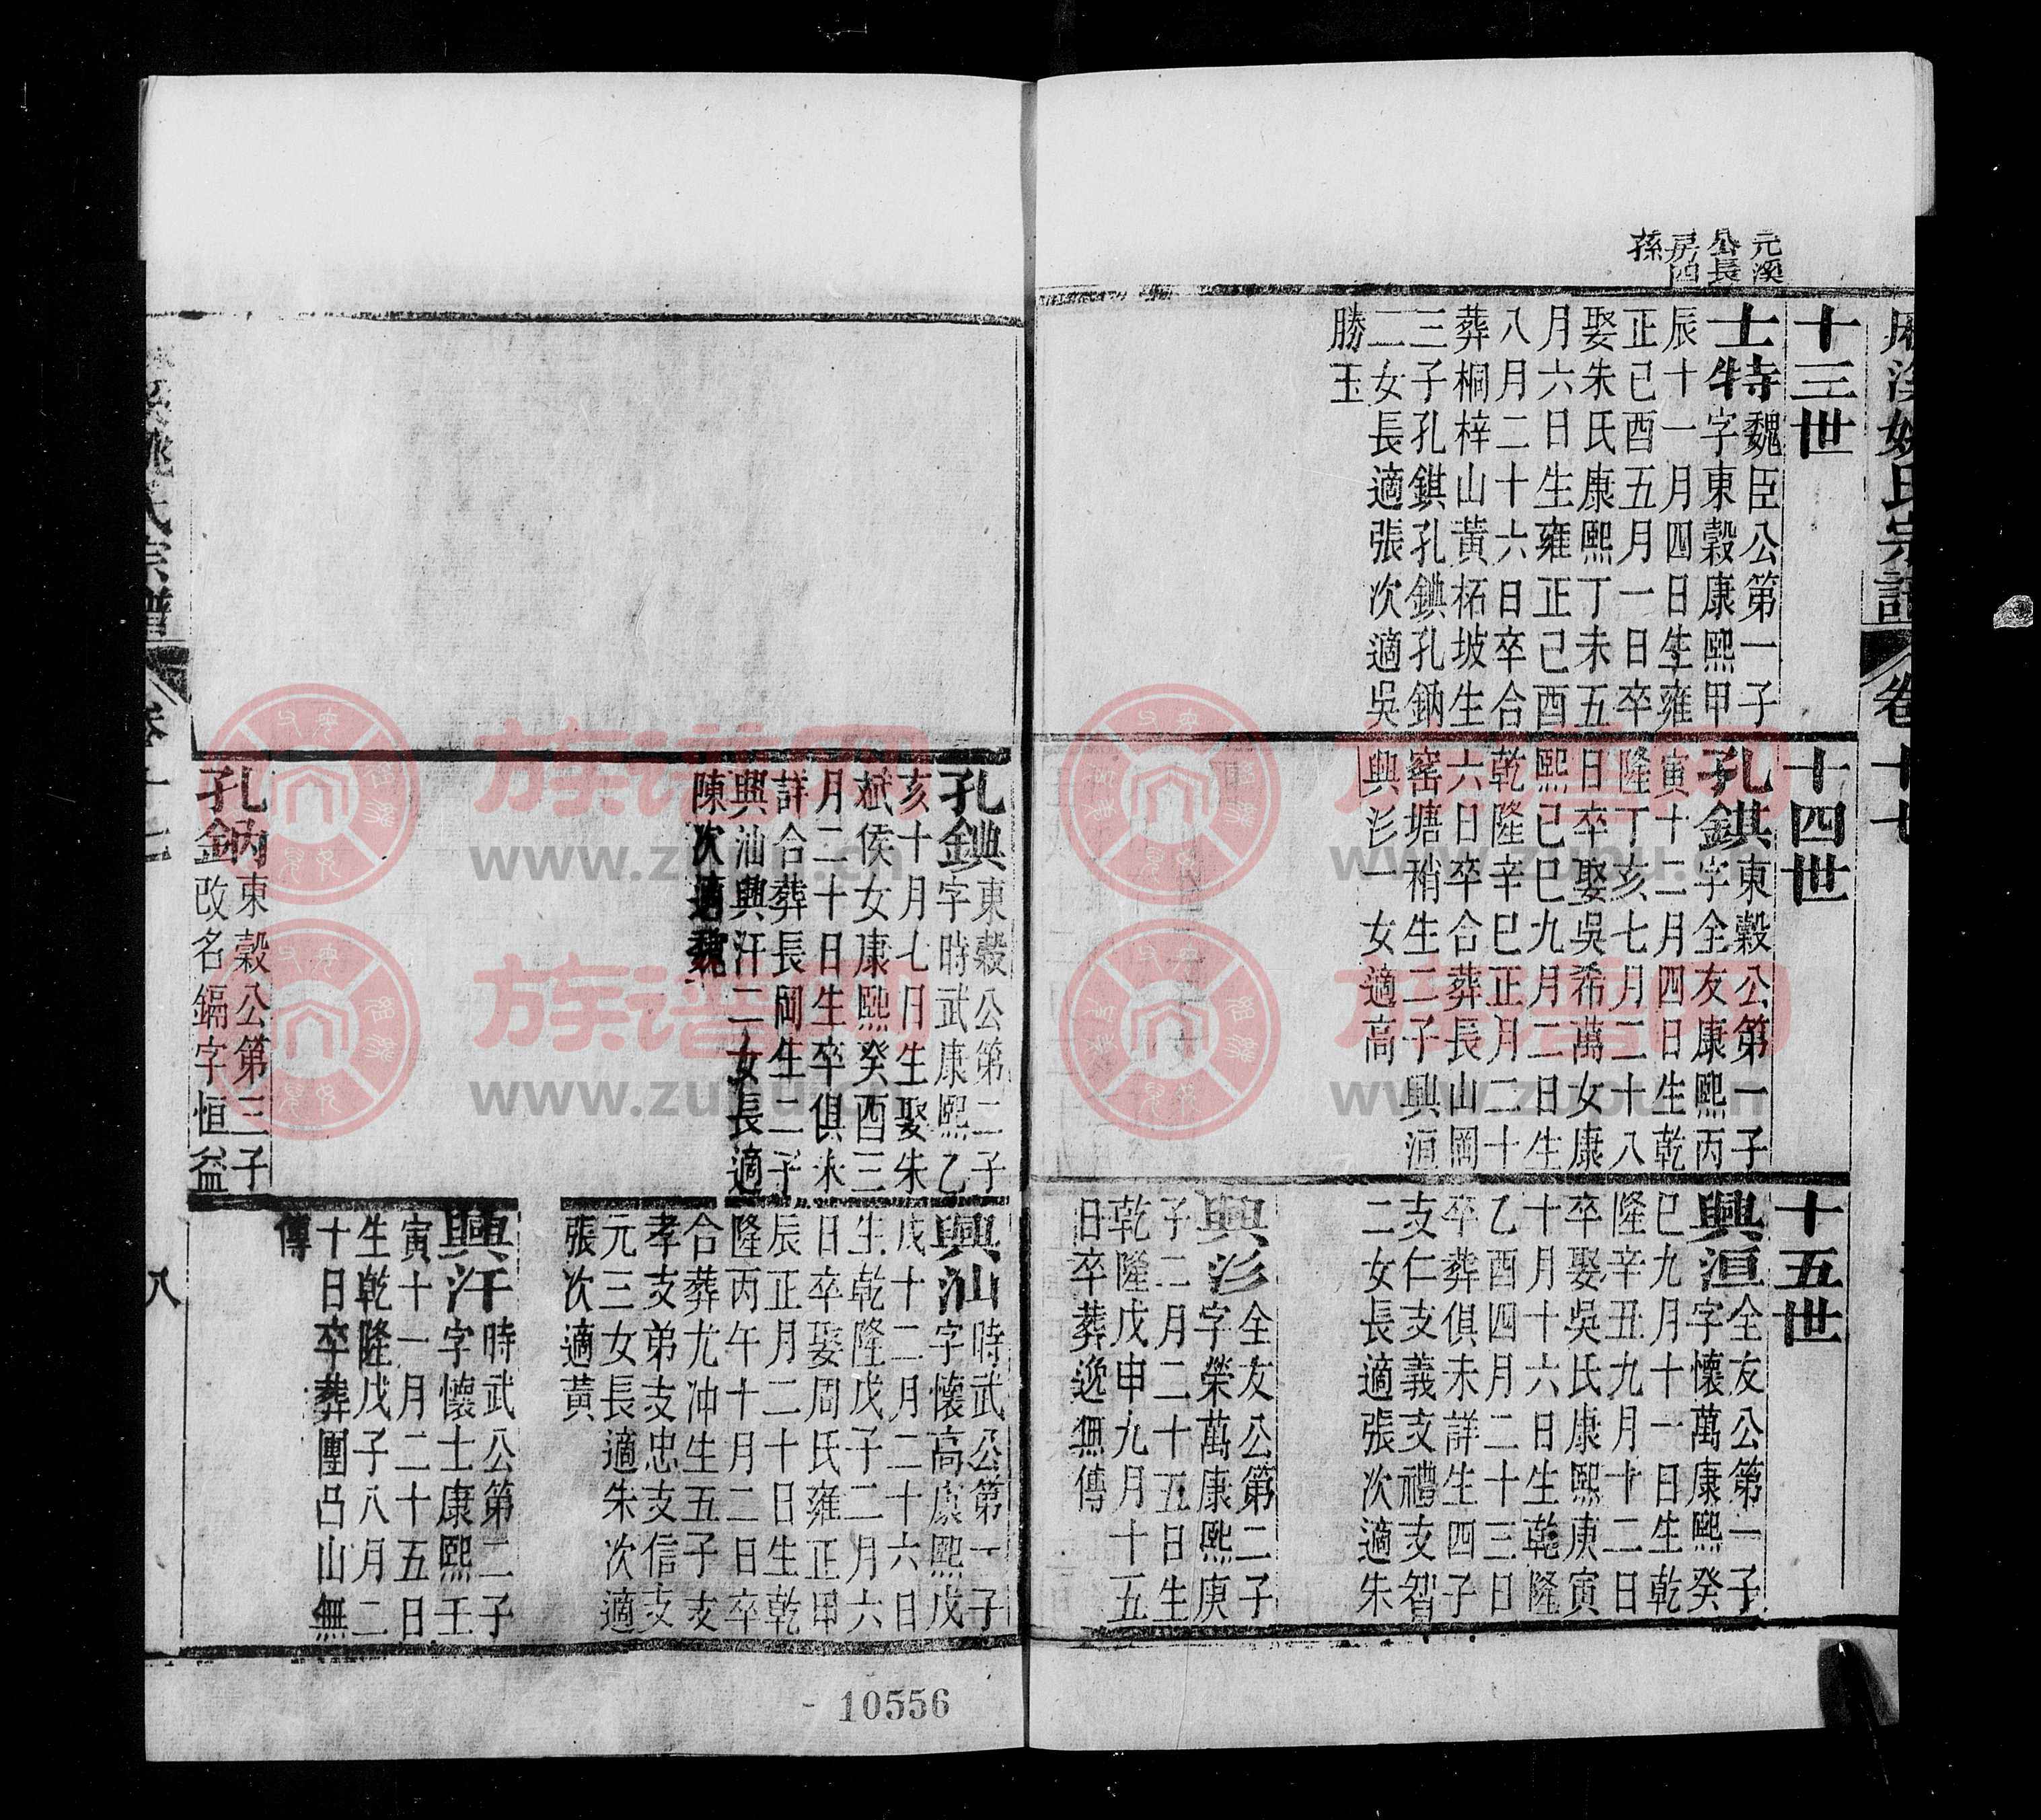 元溪
公長
房四
孫
溪姚氏宗譜
卷十七
十三世
士特
魏臣公第一子
字東穀康熙甲
辰十一月四日生雍
正己酉五月一日卒
娶朱氏康熙丁未五
月六日生雍正己酉
八月二十六日卒合
葬桐梓山黃柘坡生
三子孔錤孔錪孔鈵
二女長適張次適吳
勝玉
十四世
孔錤
東穀公第一子
字全友康熙丙
寅十二月四日生乾
隆丁亥七月二十八
日卒娶吳希萬女康
熙己巳九月二日生
乾隆辛巳正月二十
六日卒合葬長山岡
窑塘稍生二子興洹
興涁一女適高
十五世
興洹
全友公第一子
字懷萬康熙癸
巳九月十一日生乾
隆辛丑九月十二日
卒娶吳氏康熙庚寅
十月十六日生乾隆
乙酉四月二十三日
卒葬俱未詳生四子
支仁支義支禮支智
二女長適張次適朱
興涁
全友公第二子
字榮萬康熙庚
子二月二十五日生
乾隆戊申九月十五
日卒葬逸無傳
孔錪
東穀公第二子
字時武康熙乙
亥十月七日生娶朱
斌侯女康熙癸酉三
月二十日生卒俱未
詳合葬長岡生二子
興汕興汗二女長適
陳次適魏
興汕
時武公第一子
字懷高康熙戊
戌十二月二十六日
生乾隆戊子二月六
日卒娶周氏雍正甲
辰正月二十日生乾
隆丙午十月二日卒
合葬尤冲生五子支
孝支弟支忠支信支
元三女長適朱次適
張次適黃
興汗
時武公第二子
字懷士康熙壬
寅十一月二十五日
生乾隆戊子八月二
十日卒葬團吕山無
傳
孔鈵
東穀公第三子
改名鎘字恒益
溪姚氏宗譜
卷十七
八
10556
族谱网
www.zupu.cn
族谱网
www.zupu.cn
族谱网
www.zupu.cn
族谱网
www.zupu.cn